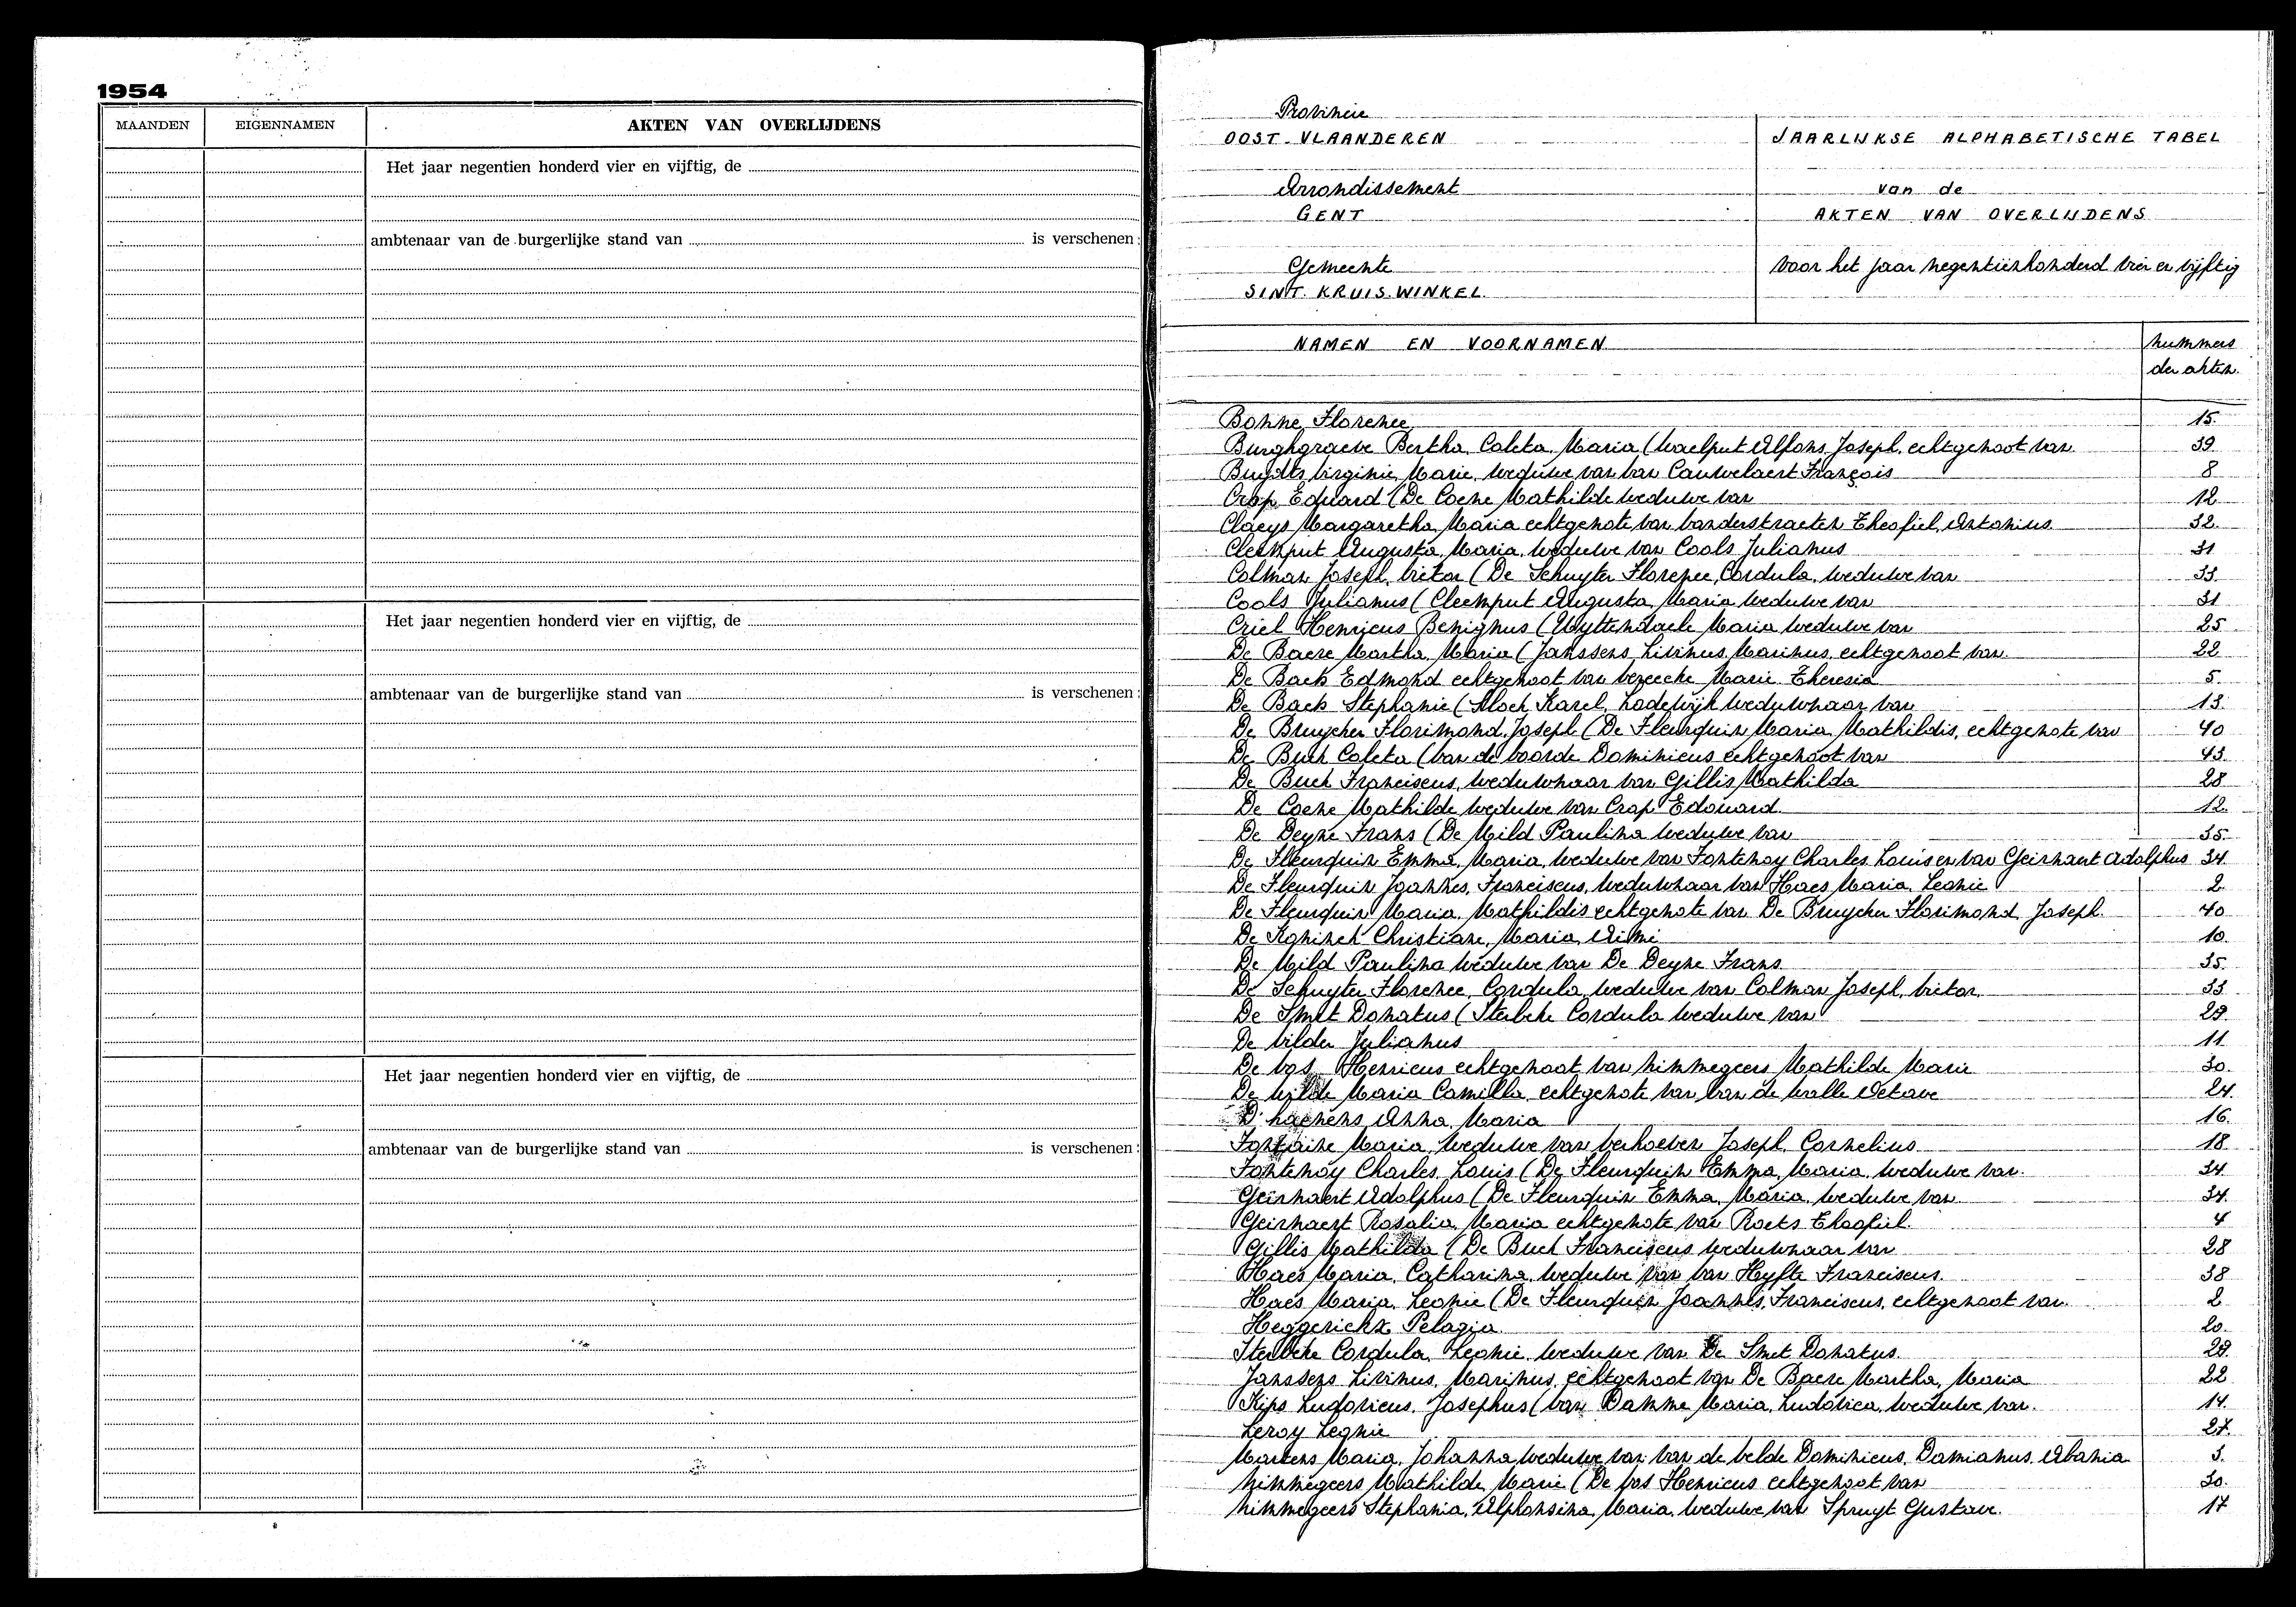 1954
MAANDEN EIGENNAMEN AKTEN VAN OVERLIJDENS
Het jaar negentien honderd vier en vijftig, de
ambtenaar van de burgerlijke stand van is verschenen:
Het jaar negentien honderd vier en vijftig, de
ambtenaar van de burgerlijke stand van is verschenen:
Het jaar negentien honderd vier en vijftig, de
ambtenaar van de burgerlijke stand van is verschenen:
Provincie
OOST-VLAANDEREN JAARLIJKSE ALPHABETISCHE TABEL
Arrondissement van de
GENT AKTEN VAN OVERLIJDENS
Gemeente voor het jaar negentienhonderd vier en vijftig
SINT.KRUIS.WINKEL.
NAMEN EN VOORNAMEN nummers
der akten.
Bonne, Florence 15.
Burghgraeve Bertha, Coleta, Maria (Waelput Alfons, Joseph, echtgenoot van 39.
Buydts, Virginie, Marie, weduwe van Van Cauwelaert François 8
Crap, Eduard (De Coene Mathilde weduwe van 12
Claeys Margaretha, Maria echtgenote van Vanderstraeten Theofiel, Antonius 32.
Cleemput Augusta, Maria, weduwe van Cools Julianus 31
Colman Joseph, Victor (De Schuyter Florence, Cordula, weduwe van 33
Cools Julianus (Cleemput Augusta, Maria weduwe van 31
Criel Henricus Benignus (Uyttendaele Maria weduwe van 25
De Baere Martha, Maria (Janssens, Livinus, Marinus, echtgenoot van 22
De Back Edmond echtgenoot van Marie Theresia 5
De Back Stephanie (Block Karel, Lodewijk weduwnaar van 13.
De Bruycker Florimond, Joseph (De Fleurquin Maria, Mathildis, echtgenote van 40
De Buck Coleta (Van de Voorde Dominicus echtgenoot van 43.
De Buck Franciscus, weduwnaar van Gillis Mathilda 28
De Coene Mathilde weduwe van Crap Edouard 12.
De Deyne Frans (De Mild Paulina weduwe van 35
De Fleurquin Emma, Maria, weduwe van Fontenoy Charles, Louis en van Geirnaert Adolphus 34
De Fleurquin Joannes, Franciscus, weduwnaar van Haes Maria, Leonie 2
De Fleurquin Maria, Mathildis echtgenote van De Bruycker Florimond, Joseph. 40
De Koninck Christiane, Maria, 10.
De Mild Paulina weduwe van De Deyne Frans 35.
De Schuyter Florence, Cordula, weduwe van Colman Joseph, Victor. 33
De Smet Donatus (Sterbeke Cordula weduwe van 29
De Vilder Julianus 11
De Vos Henricus echtgenoot van Nimmegeers Mathilde Marie 30.
De Wilde Maria Camilla, echtgenote van Van de Walle Octave 24.
D'haenens Anna, Maria 16.
Fontaine Maria, weduwe van Verhoeven Joseph, Cornelius 18
Fontenoy Charles, Louis (De Fleurquin Emma, Maria, weduwe van. 34
Geirnaert Adolphus (De Fleurquin Emma, Maria, weduwe van 34.
Geirnaert Rosalia, Maria echtgenote van Roets Theofiel. 4
Gillis Mathilda (De Buck Franciscus weduwnaar van 28
Haes Maria, Catharina, weduwe van Van Hyfte Franciscus. 38
Haes Maria, Leonie (De Fleurquin Joannes, Franciscus, echtgenoot van. 2
Heggerickx Pelagia 20.
Sterbeke Cordula, Leonie, weduwe van De Smet Donatus. 29.
Janssens Livinus, Marinus, echtgenoot van De Baere Martha, Maria 22
Kips Ludovicus, Josephus (Van Damme Maria, Ludovica, weduwe van. 14.
Leroy Leonie 27.
Martens Maria, Johanna weduwe van Van de Velde Dominicus, Damianus, 3.
Nimmegeers Mathilde, Marie (De Vos Henricus echtgenoot van 30.
Nimmegeers Stephania, Alphonsina, Maria, weduwe van Spruyt Gustave. 17